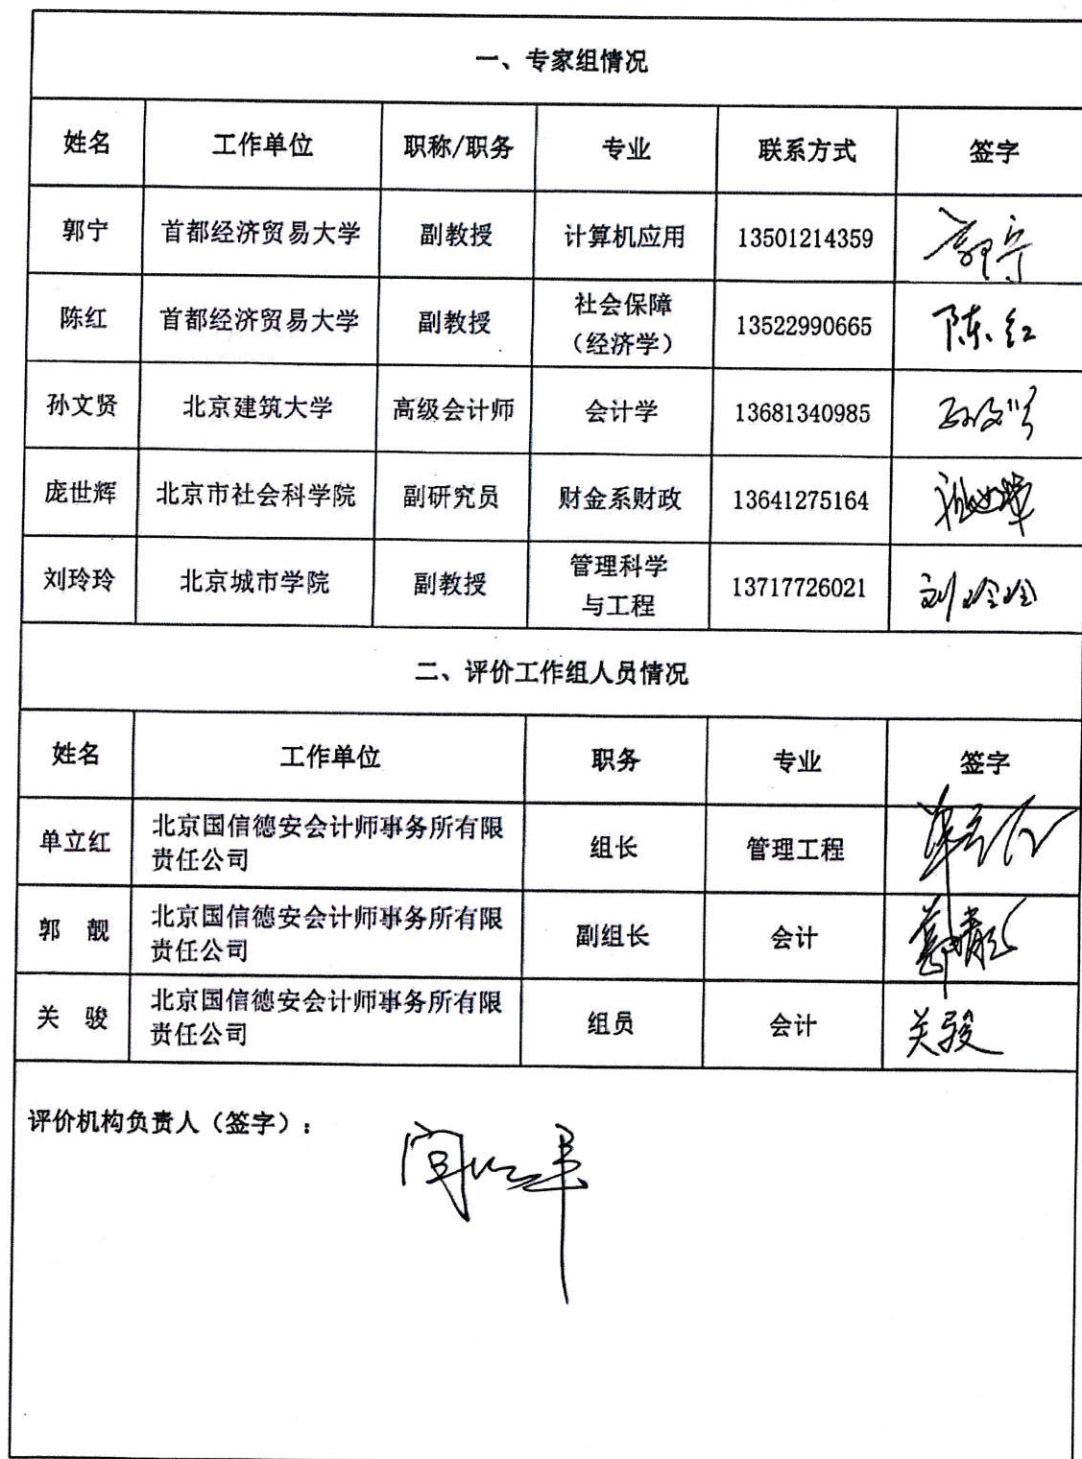 一、专家组情况
姓名 工作单位 职称/职务 专业 联系方式 签字
郭宁 首都经济贸易大学 副教授 计算机应用 13501214359 郭宁
陈红 首都经济贸易大学 副教授 社会保障
（经济学） 13522990665 陈红
孙文贤 北京建筑大学 高级会计师 会计学 13681340985 孙文贤
庞世辉 北京市社会科学院 副研究员 财金系财政 13641275164
刘玲玲 北京城市学院 副教授 管理科学
与工程 13717726021 刘玲玲
二、评价工作组人员情况
姓名 工作单位 职务 专业 签字
单立红 北京国信德安会计师事务所有限
责任公司 组长 管理工程
郭 靓 北京国信德安会计师事务所有限
责任公司 副组长 会计
关 骏 北京国信德安会计师事务所有限
责任公司 组员 会计 关骏
评价机构负责人（签字）：